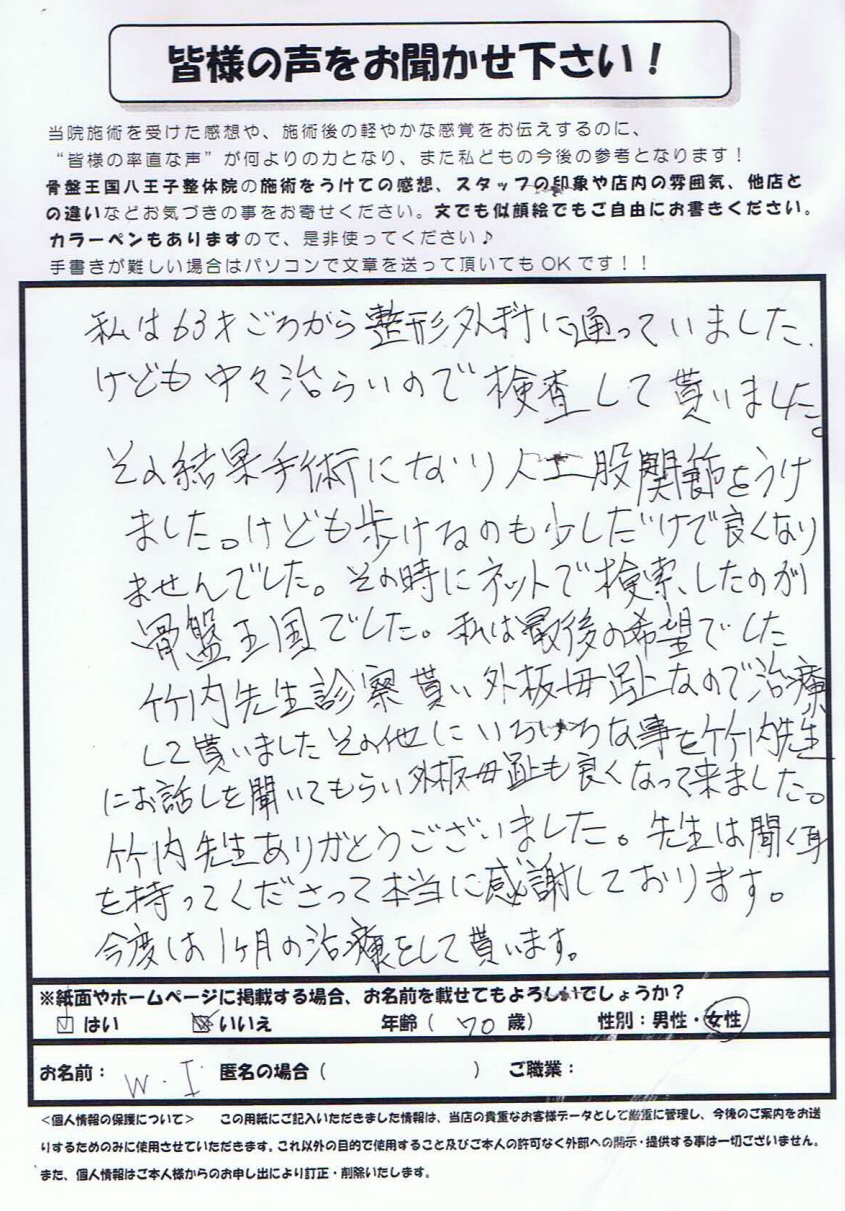 皆様の声をお聞かせ下さい！
当院施術を受けた感想や、施術後の軽やかな感覚をお伝えするのに、
“皆様の率直な声”が何よりの力となり、また私どもの今後の参考となります！
骨盤王国八王子整体院の施術をうけての感想、スタッフの印象や店内の雰囲気、他店と
の違いなどお気づきの事をお寄せください。文でも似顔絵でもご自由にお書きください。
カラーペンもありますので、是非使ってください♪
手書きが難しい場合はパソコンで文章を送って頂いてもOKです！！
私は63才ごろから整形外科に通っていました.
けども中々治らいので検査して貰いました。
その結果手術になり人工股関節をうけ
ました。けども歩けるのも少しだけで良くなり
ませんでした。その時にネットで検索、したのが
骨盤王国でした。私は最後の希望でした
竹内先生診察貰い外板母趾なので治療
して貰いましたその他にいろいろな事を竹内先生
にお話しを聞いてもらい外板母趾も良くなって来ました。
竹内先生ありがとうございました。先生は聞く耳
を持ってくださって本当に感謝しております。
今度は1ヶ月の治療をして貰います。
※紙面やホームページに掲載する場合、お名前を載せてもよろしいでしょうか？
☑はい ☒いいえ 年齢（ 70 歳） 性別：男性・女性
お名前： W.I 匿名の場合（ ） ご職業：
＜個人情報の保護について＞ この用紙にご記入いただきました情報は、当店の貴重なお客様データとして厳重に管理し、今後のご案内をお送
りするためのみに使用させていただきます。これ以外の目的で使用すること及びご本人の許可なく外部への開示・提供する事は一切ございません。
また、個人情報はご本人様からのお申し出により訂正・削除いたします。